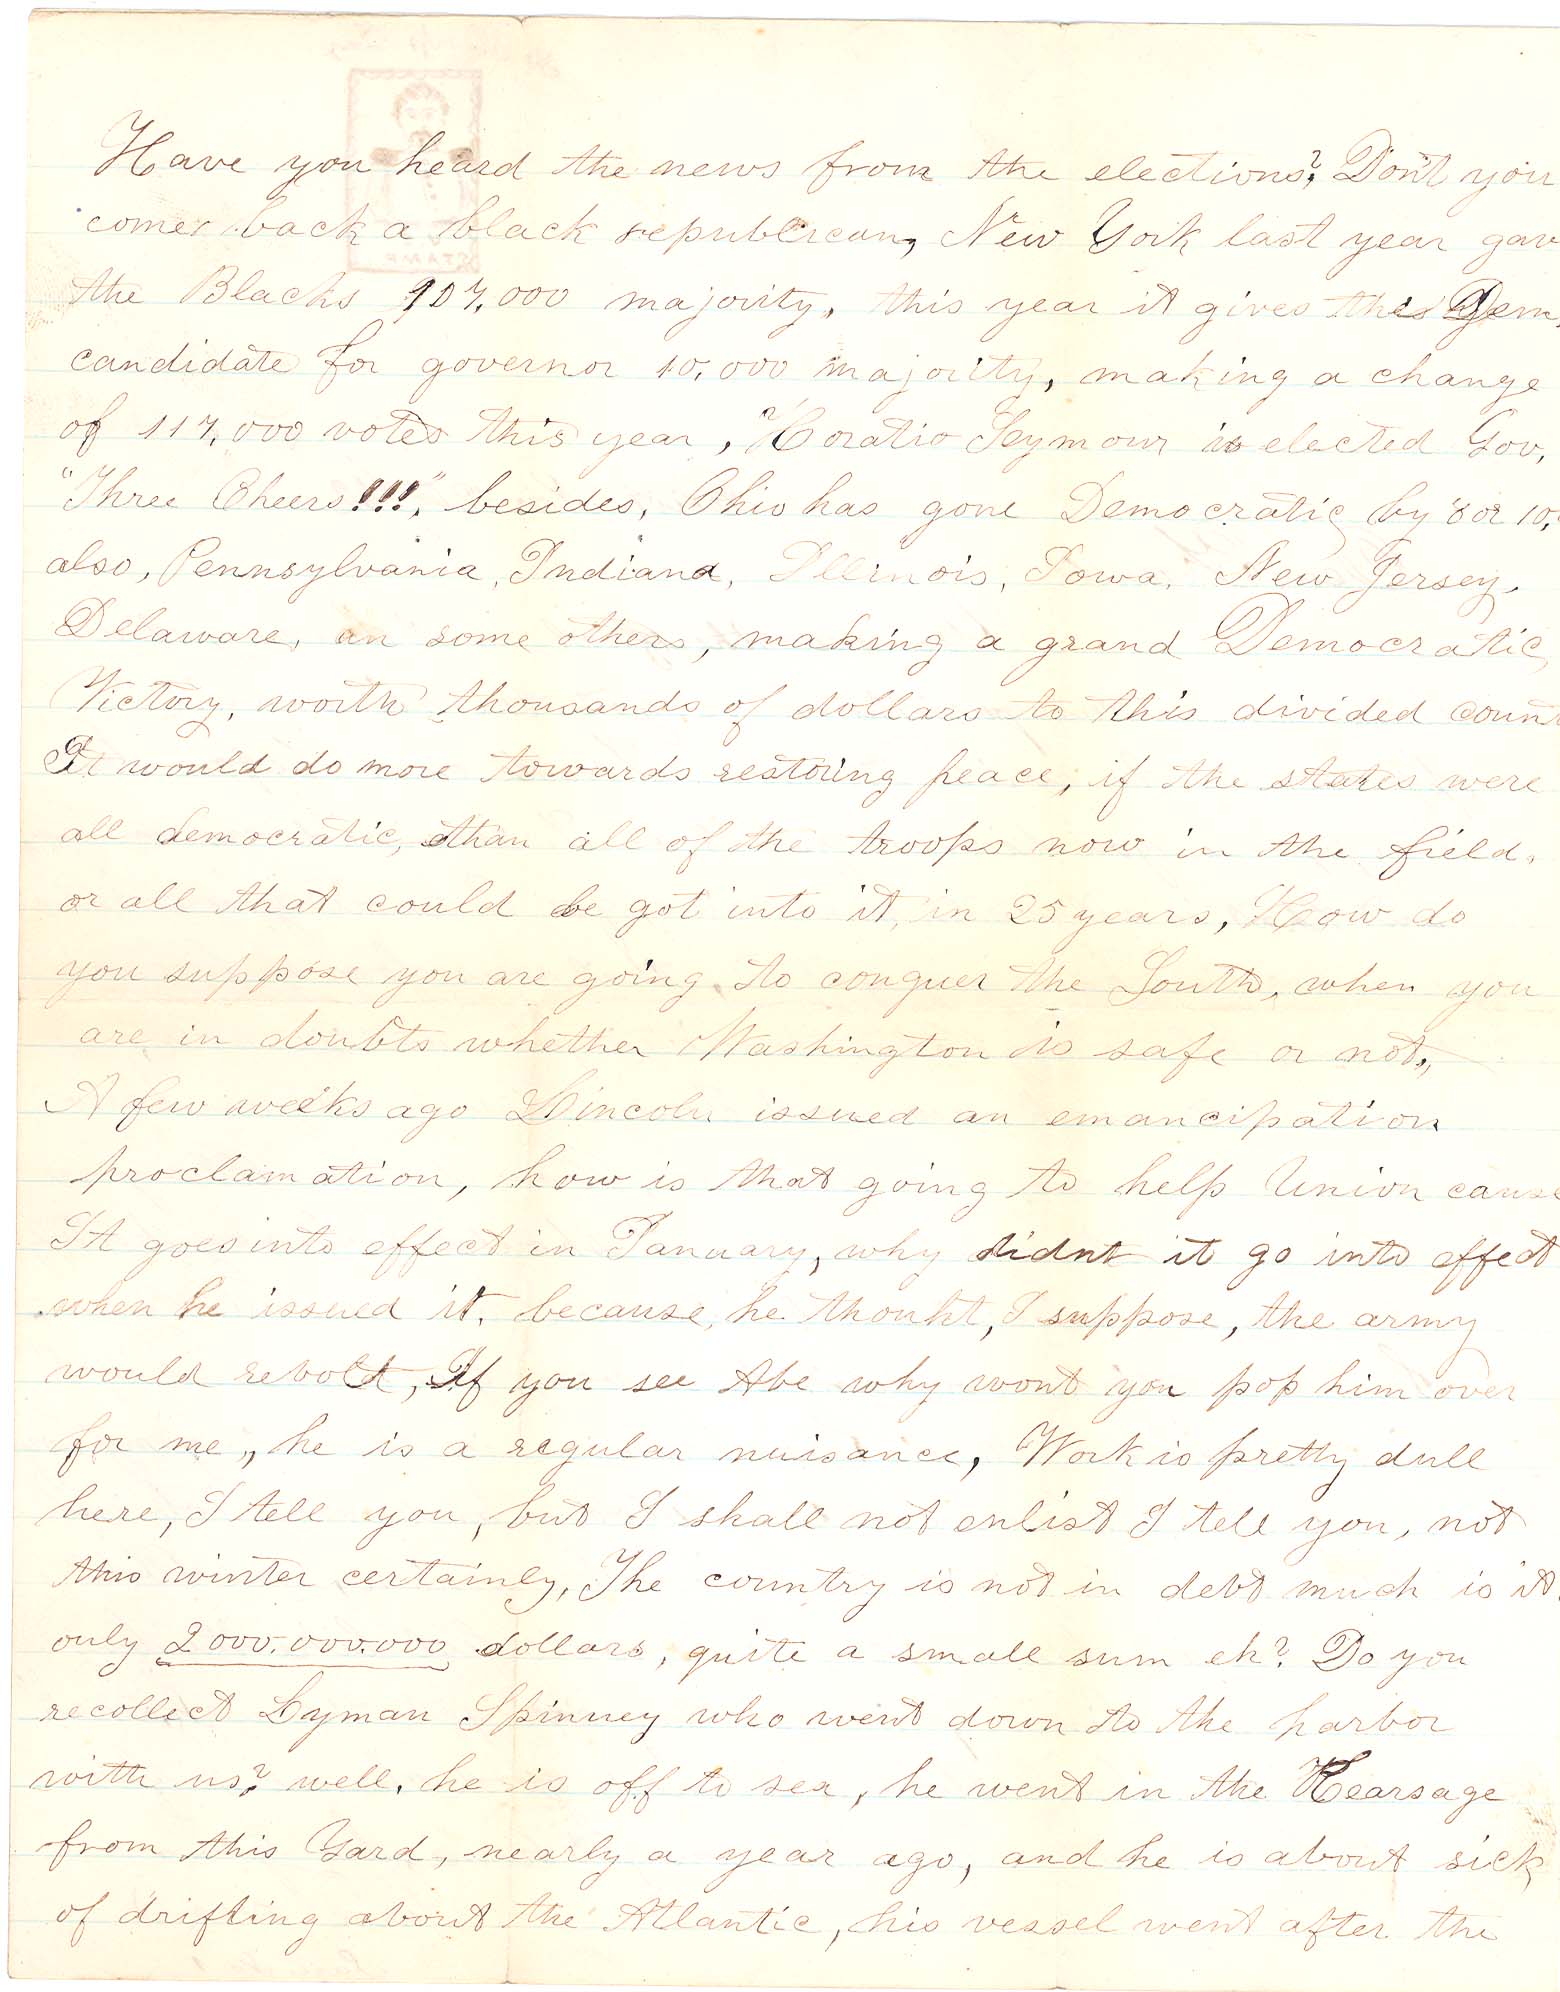 Have you heard the news from the elections? Don't you
come back a black republican, New York last year gav
the Blacks 107,000 majority, this year it gives this Dem,
candidate for governor 10,000 majority, making a change
of 117,000 votes this year, Horatio Seymour is elected Gov,
"Three Cheers!!!," besides, Ohio has gone Democratic by 8 or 10,
also, Pennsylvania, Indiana, Illinois, Iowa, New Jersey,
Delaware, an some others, making a grand Democratic
Victory, worth thousands of dollars to this divided coun
It would do more towards restoring peace, if the states were
all democratic, than all of the troops now in the field,
or all that could be got into it, in 25 years, How do
you suppose you are going to conquer the South, when you
are in doubts whether Washington is safe or not,,
A few weeks ago Lincoln issued an emancipation
proclamation, how is that going to help Union cause
It goes into effect in January, why didnt it go into effect
when he issued it, because, he thouht, I suppose, the army
would revolt, If you see Abe why wont you pop him over
for me,, he is a regular nuisance, Work is pretty dull
here, I tell you, but I shall not enlist I tell you, not
this winter certainly, The country is not in debt much is it,
only 2000,000,000 dollars, quite a small sum eh? Do you
recollect Lyman Spinney who went down to the harbor
with us? well, he is off to sea, he went in the Kearsage
from this Yard, nearly a year ago, and he is about sick
of drifting about the Atlantic, his vessel went after the